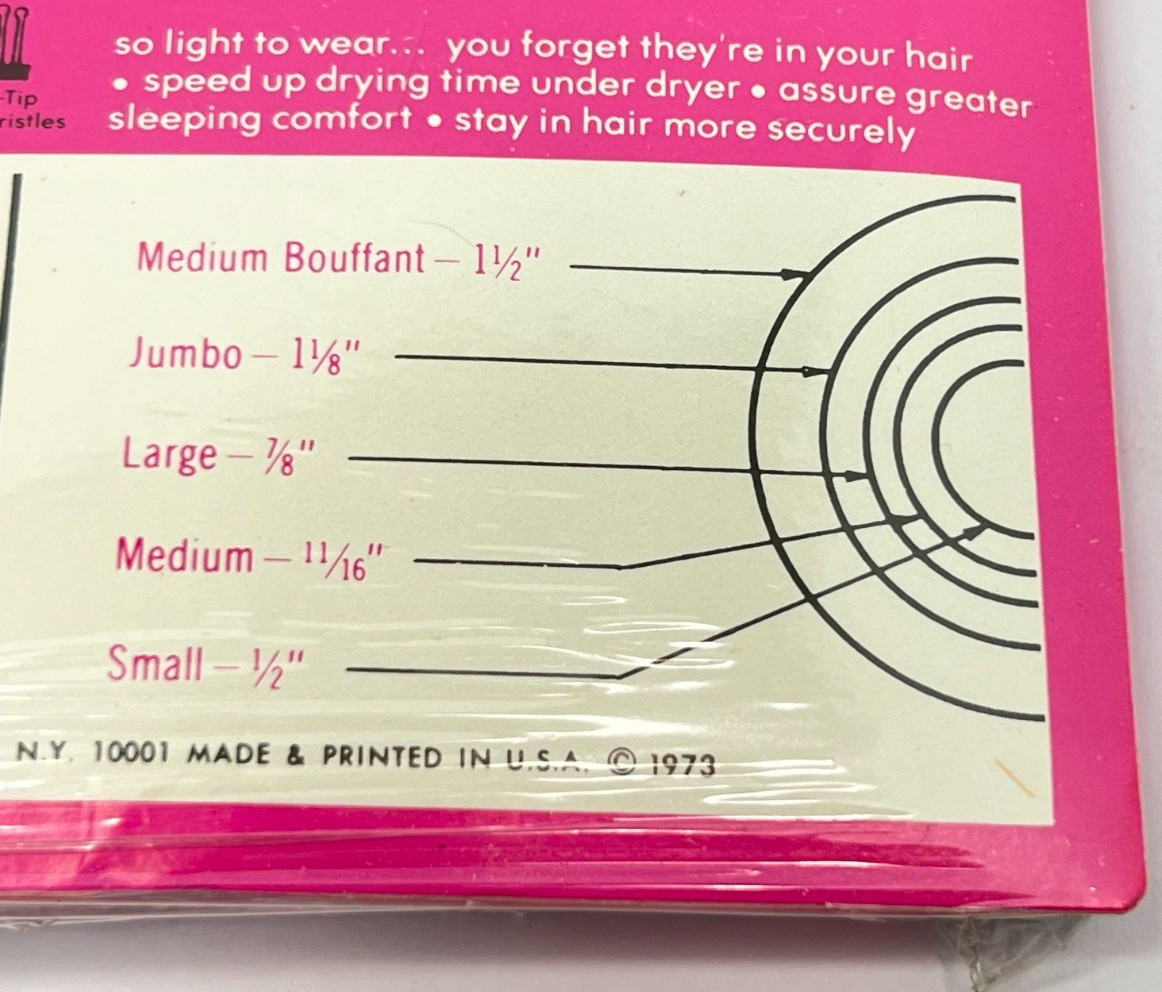 so light to wear... you forget they're in your hair
• speed up drying time under dryer • assure greater
sleeping comfort • stay in hair more securely
-Tip
ristles
Medium Bouffant – 1½"
Jumbo – 1⅛"
Large – ⅞"
Medium – 11/16"
Small – ½"
N.Y. 10001 MADE & PRINTED IN U.S.A. © 1973